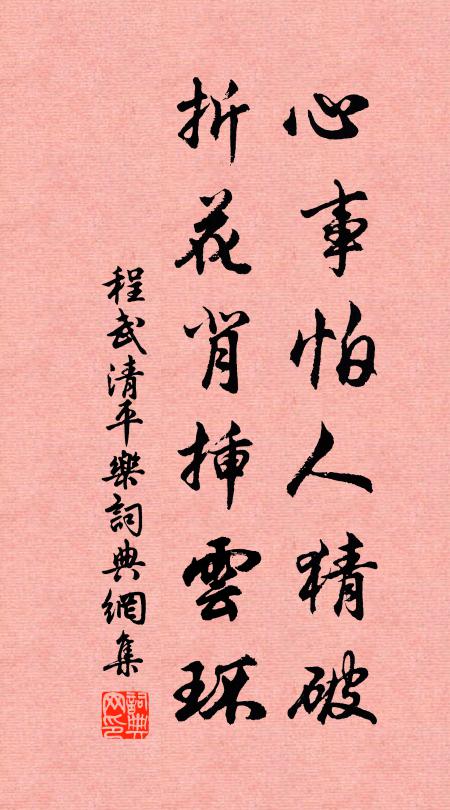 心事怕人猜破
折花背插雲环
程武清平樂詞典網集
詞典网印